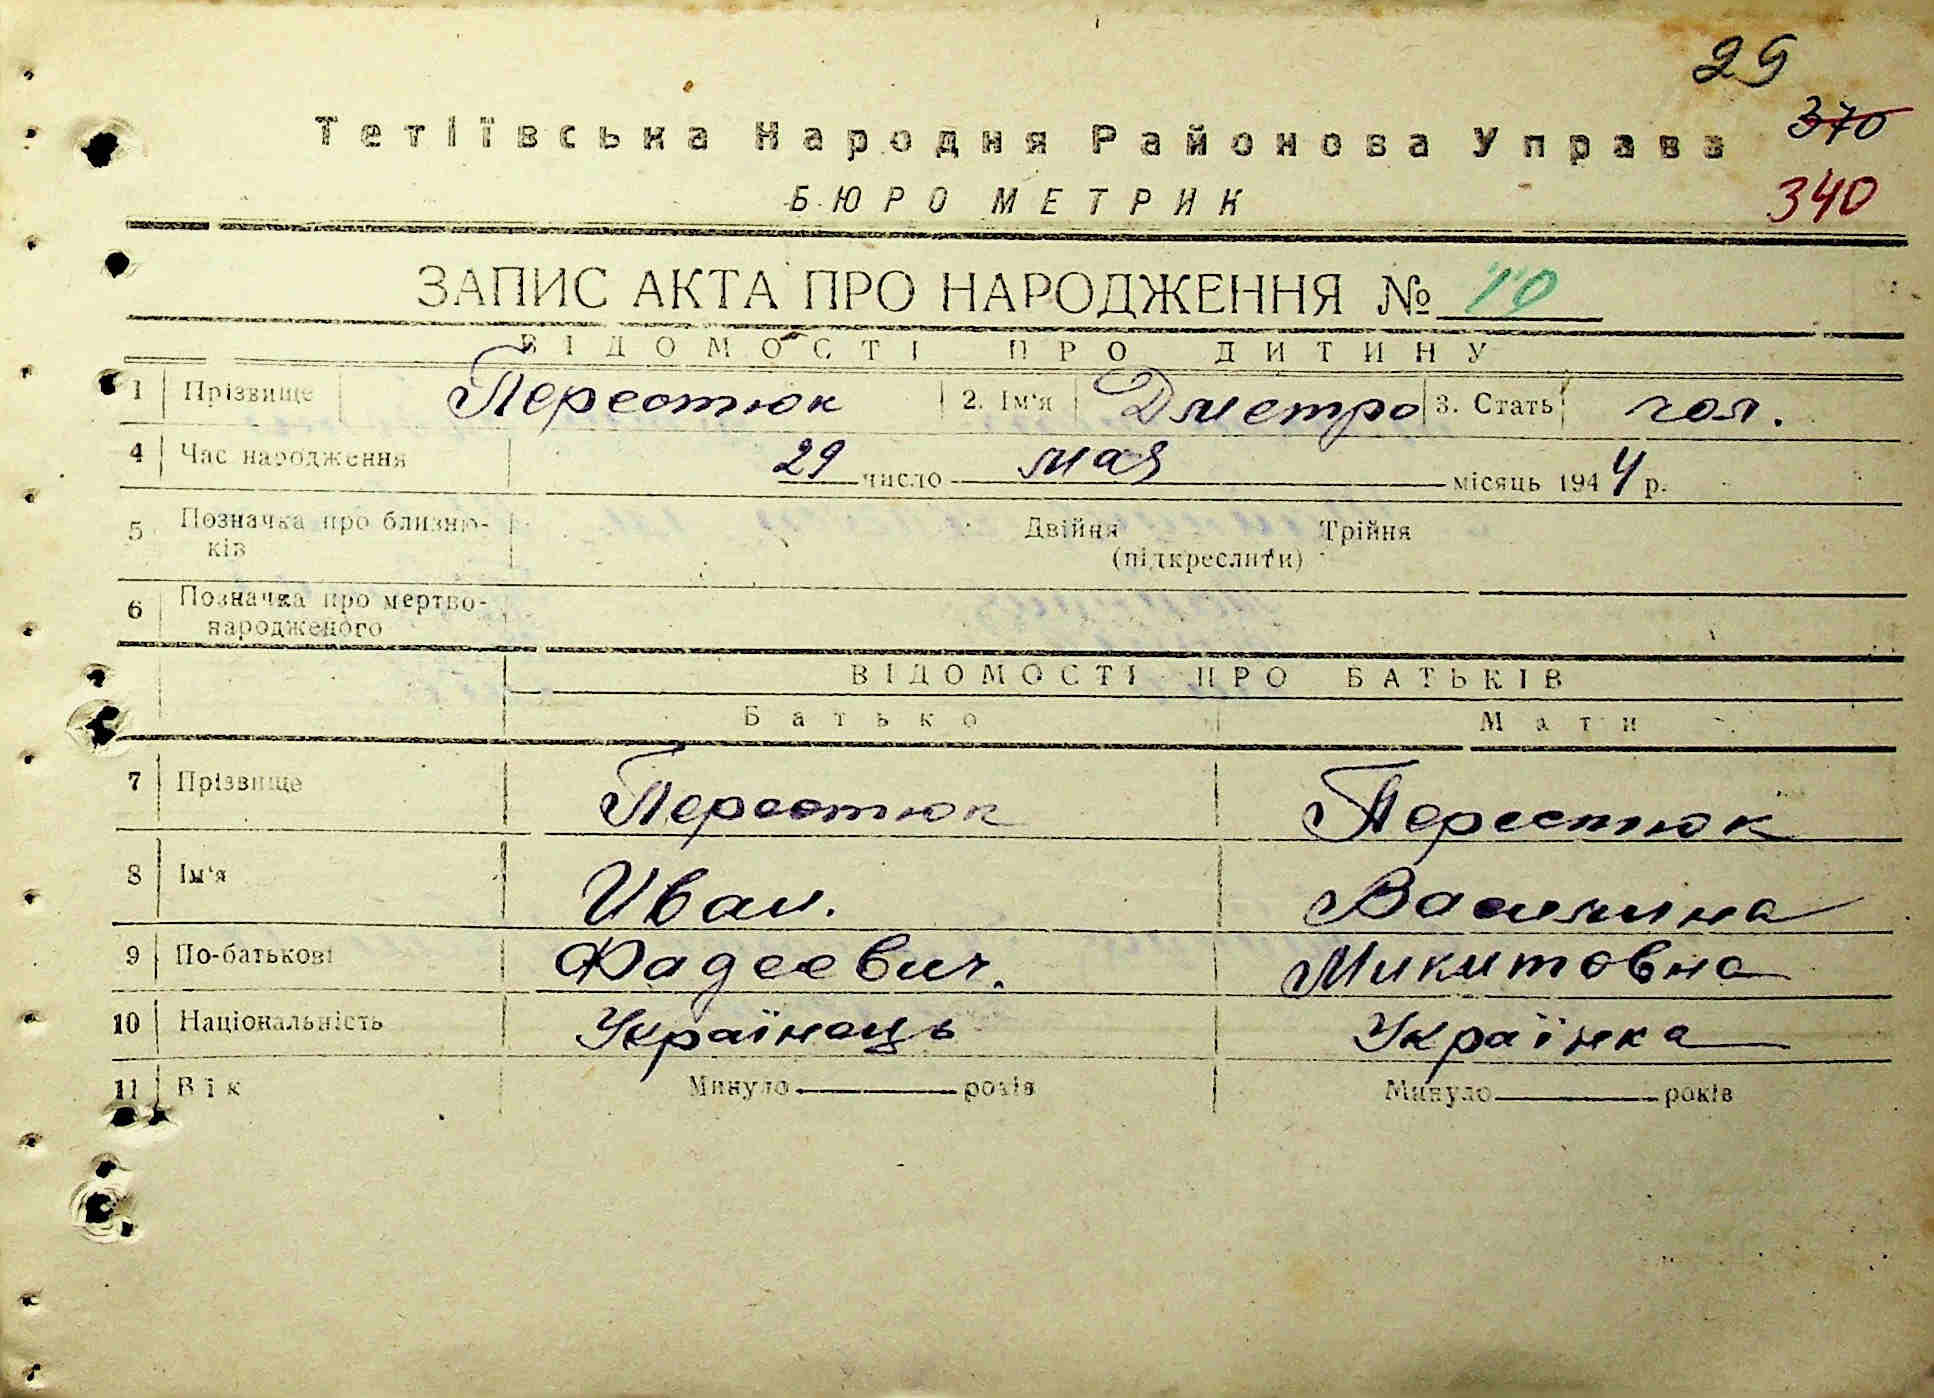 29
370
Тетіївська Народня Районова Управа
340
БЮРО МЕТРИК
ЗАПИС АКТА ПРО НАРОДЖЕННЯ № "10
ВІДОМОСТІ ПРО ДИТИНУ
1 Прізвище Перестюк 2. Ім'я Дметро 3. Стать чол.
4 Час народження 29 число мая місяць 1944 р.
5 Позначка про близню-
ків Двійня Трійня
(підкреслити)
6 Позначка про мертво-
народженого
ВІДОМОСТІ ПРО БАТЬКІВ
Батько Мати
7 Прізвище Перестюк Перестюк
8 Ім'я Иван. Василина
9 По-батькові Фадеевич. Микитовна
10 Національність Українець Українка
11 Вік Минуло років Минуло років